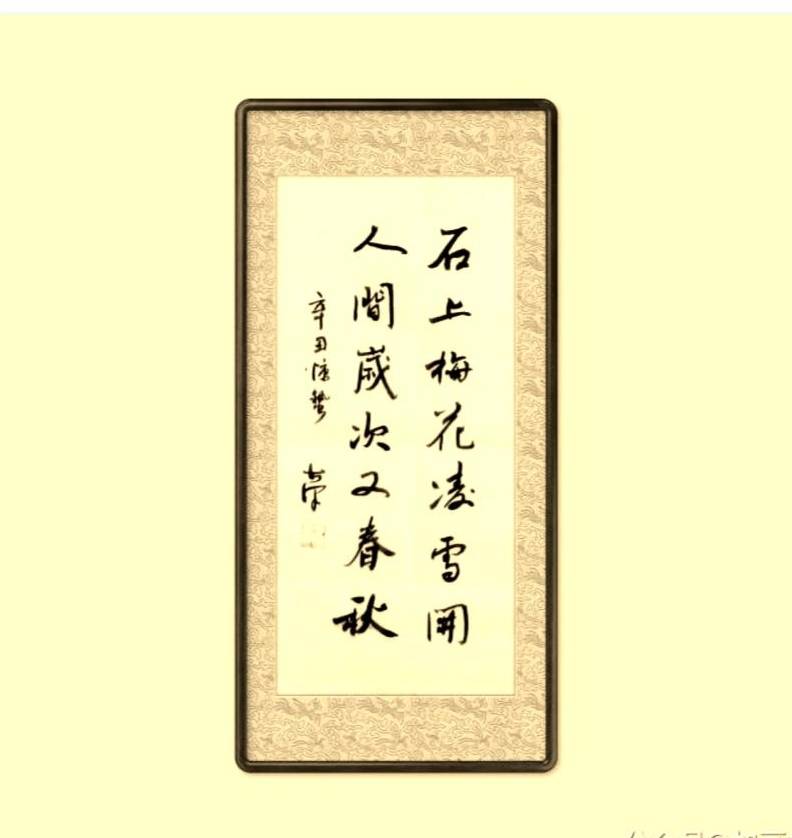 石上梅花凌雪開
人間歲次又春秋
辛丑惊蟄
榮